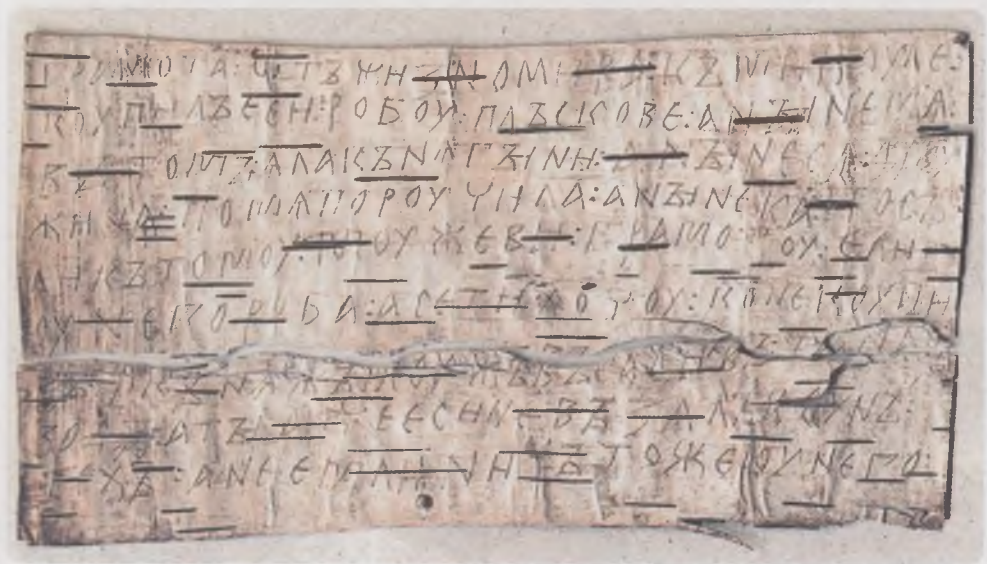 ГРАМОТА : ѠТЪ ЖИЗНОМИРА : КЪ МИКОУЛЕ :
КОУПИЛЪ ЕСИ : РОБОУ : ПЛЪСКОВЕ : А НЫНЕ МѦ :
ВЪ ТОМЪ : ѦЛА КЪНѦГЫНИ : А НЫНЕ СѦ ДРОУ
ЖИНА : ПО МѦ ПОРОУЧИЛА : А НЫНЕ КА : ПОСЪ
ЛИ КЪ ТОМОУ : МОУЖЕВИ : ГРАМОТОУ : ЕЛИ
ОУ НЕГО РОБА : А СЕ ТИ ХОЧОУ : КОНЕ КОУПИ
КЪНѦЖЪ МОУЖЪ ВЪСАДИ
ВОДЫ : А ТЫ АТЧЕ ЕСИ НЕ ВЪЗАЛЪ КОУНЪ :
ТЕХЪ : А НЕ ЕМЛИ : НИЧЪТО ЖЕ ОУ НЕГО :